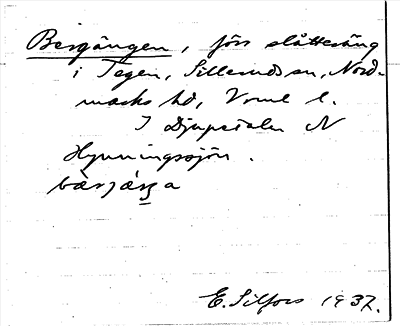 Bergängen, förr slåtteräng
i Tegen, Sillerudssn, Nord-
marks hd, Vrml l.
I Djupedalen N
Hynningssjön.
E. Silfors 1937.